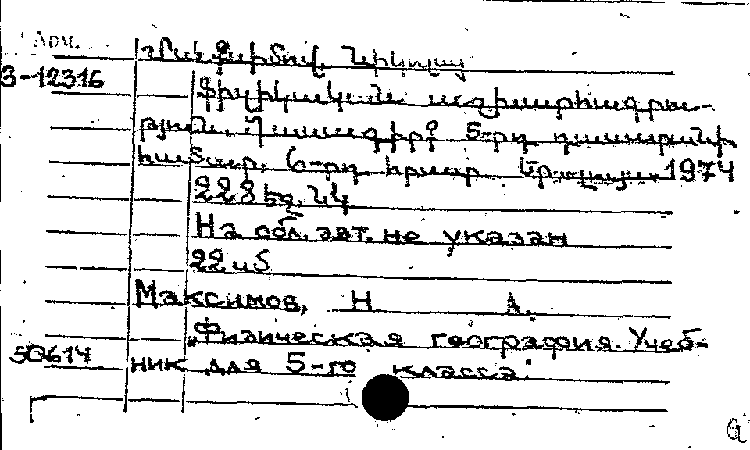 Арм.
3-12316
Մաքսիմով, Նիկոլայ
Ֆիզիկական աշխարհագրու-
թյուն. Դասագիրք 5-րդ դասարանի
համար. 6-րդ հրատ. 1974
228 էջ. նկ
На обл. авт. не указан
Максимов, Н А.
"Физическая география. Учеб-
50614 ник для 5-го класса"